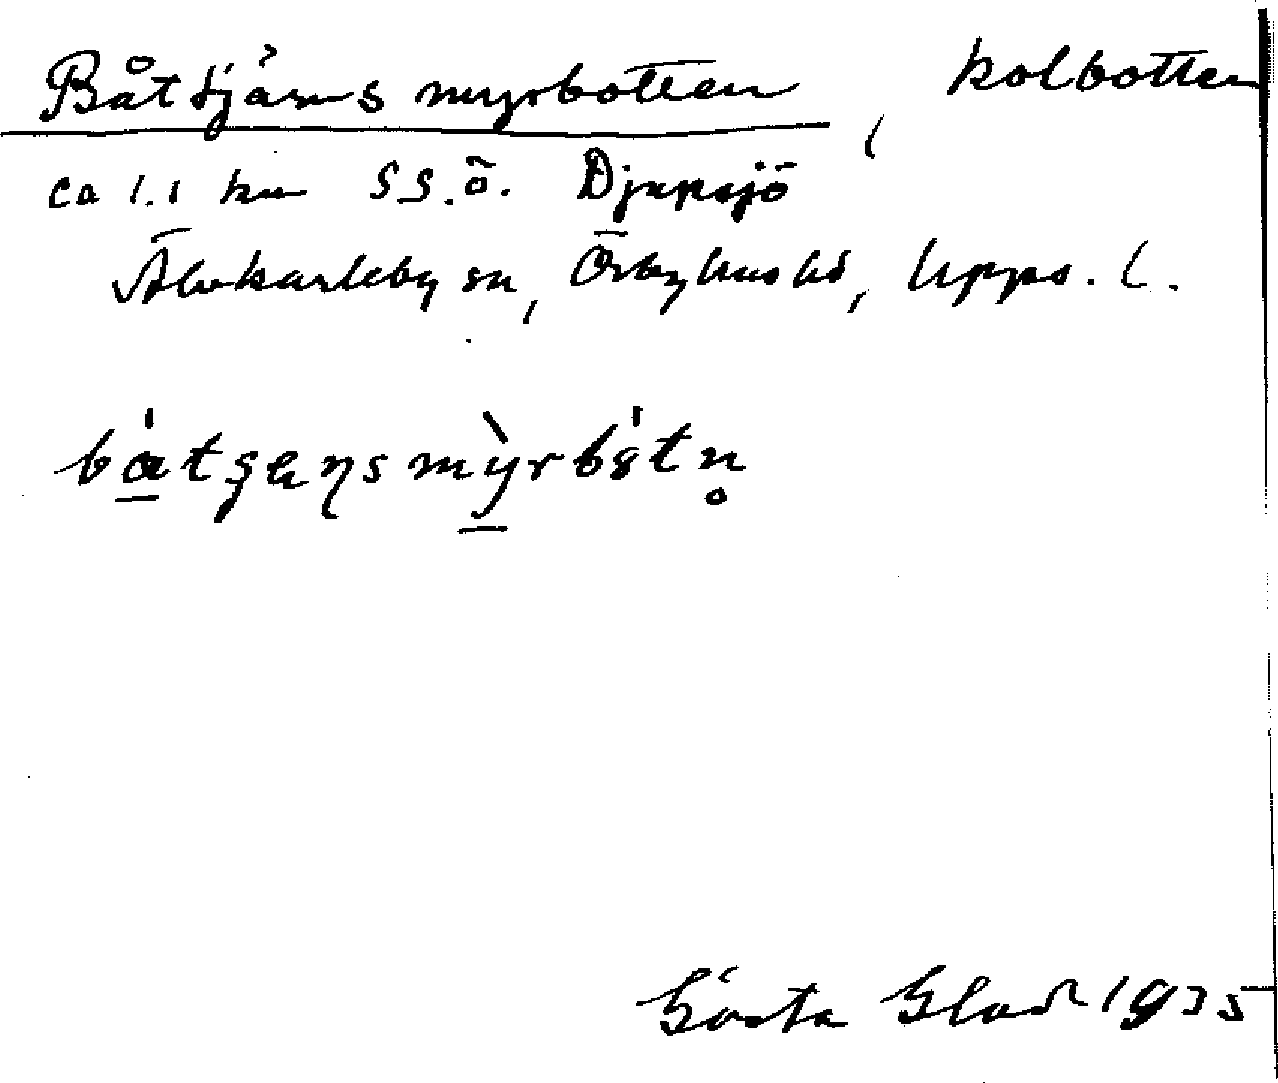 Båttjärnsmyrbotten, kolbotten
ca 1.1 km SS.ö. Djupsjö
Älvkarleby sn, Örbyhus hd, Upps. l.
Gösta Glad 1935